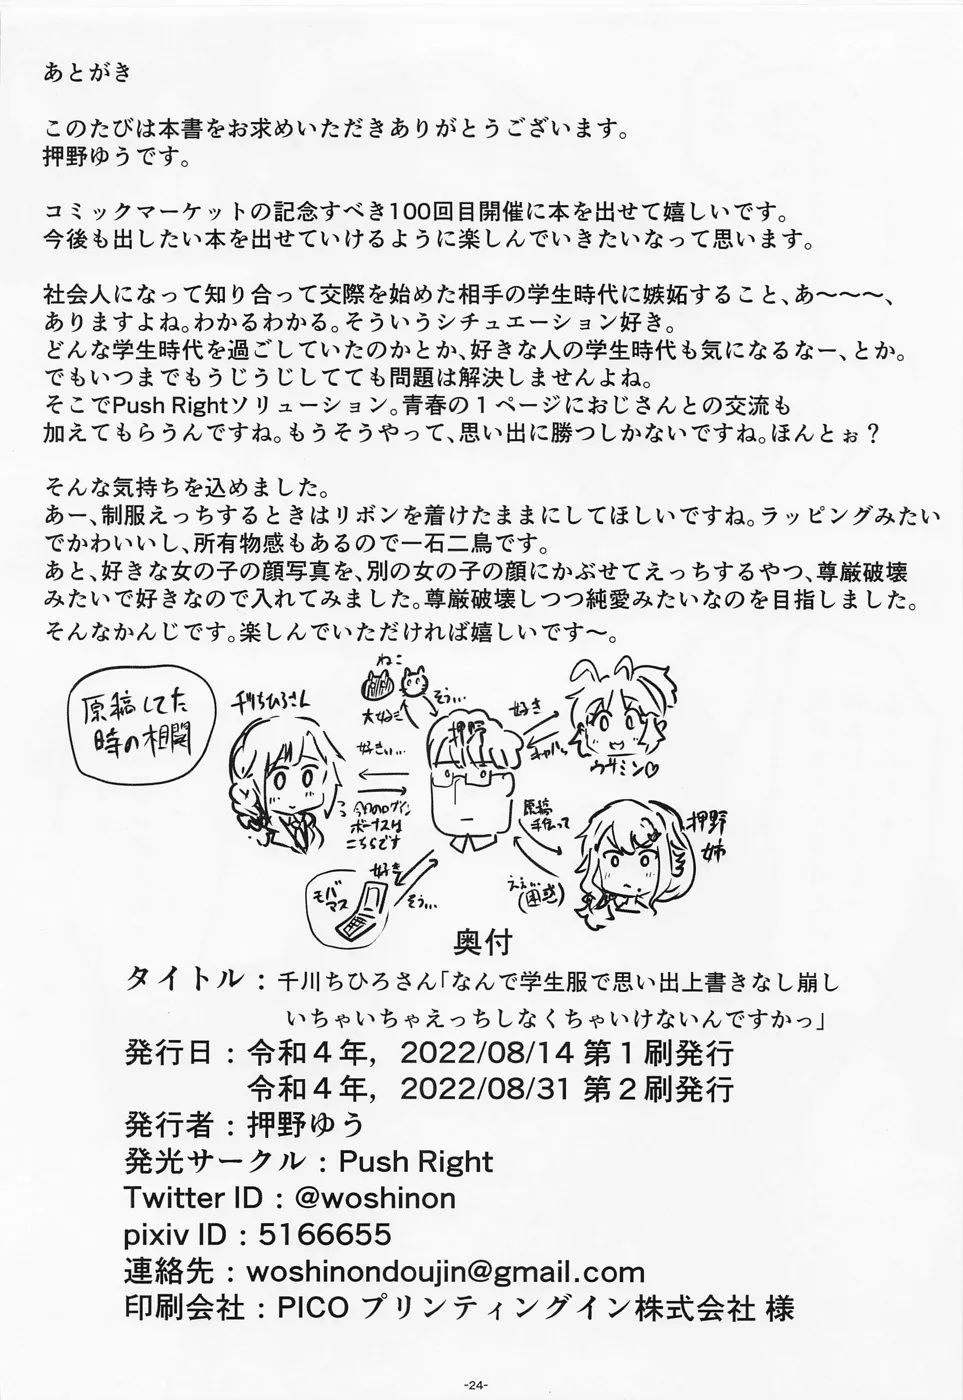 あとがき
このたびは本書をお求めいただきありがとうございます。
押野ゆうです。
コミックマーケットの記念すべき100回目開催に本を出せて嬉しいです。
今後も出したい本を出せていけるように楽しんでいきたいなって思います。
社会人になって知り合って交際を始めた相手の学生時代に嫉妬すること、あ〜〜〜、
ありますよね。わかるわかる。そういうシチュエーション好き。
どんな学生時代を過ごしていたのかとか、好きな人の学生時代も気になるなー、とか。
でもいつまでもうじうじしてても問題は解決しませんよね。
そこでPush Rightソリューション。青春の１ページにおじさんとの交流も
加えてもらうんですね。もうそうやって、思い出に勝つしかないですね。ほんとぉ？
そんな気持ちを込めました。
あー、制服えっちするときはリボンを着けたままにしてほしいですね。ラッピングみたい
でかわいいし、所有物感もあるので一石二鳥です。
あと、好きな女の子の顔写真を、別の女の子の顔にかぶせてえっちするやつ、尊厳破壊
みたいで好きなので入れてみました。尊厳破壊しつつ純愛みたいなのを目指しました。
そんなかんじです。楽しんでいただければ嬉しいです〜。
原稿してた
時の相関
千川ちひろさん
ねこ
大好き
そう…
押野
好き
キャハッ
ウサミン♡
好き…
今日のログイン
ボーナスは
こちらです
原稿
手伝って
ええ…
(困惑)
押野
姉
モバ
マス
好き
そう…
奥付
タイトル：千川ちひろさん「なんで学生服で思い出上書きなし崩し
いちゃいちゃえっちしなくちゃいけないんですかっ」
発行日：令和４年，2022/08/14 第１刷発行
令和４年，2022/08/31 第２刷発行
発行者：押野ゆう
発光サークル：Push Right
Twitter ID：@woshinon
pixiv ID：5166655
連絡先：woshinondoujin@gmail.com
印刷会社：PICO プリンティングイン株式会社 様
-24-